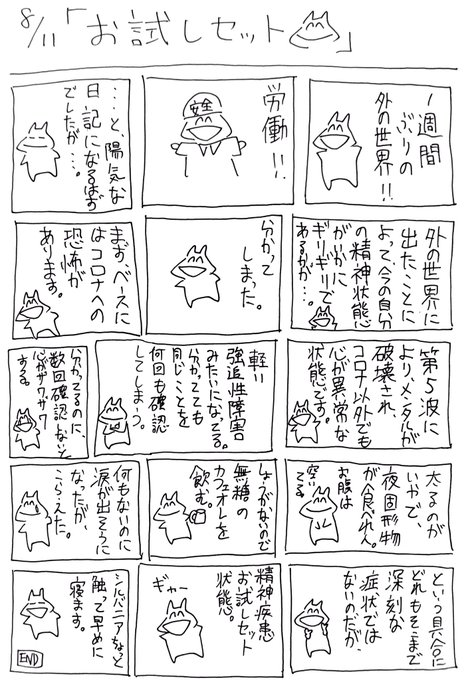 8/11「お試しセット」
1週間
ぶりの
外の世界!!
労働!!
安全
…と、陽気な
日記になるはず
でしたが…。
外の世界に
出たことに
よって、今の自分
の精神状態
がいかに
ギリギリで
あるかが…、
分かって
しまった。
まず、ベースに
はコロナへの
恐怖が
あります。
第5波に
より、メンタルが
破壊され
コロナ以外でも
心が異常な
状態です。
軽い
強迫性障害
みたいになってる。
分かってても
同じことを
何回も確認
してしまう。
分かってるのに、
数回確認しないと
心がザワザワ
する。
太るのが
いやで、
夜固形物
が食べれん。
お腹は
空いてます
しょうがないので
無糖の
カフェオレを
飲む。
何もないのに
涙が出そうに
なったが、
こらえた。
という具合に
どれもそこまで
深刻な
症状では
ないのだが、
精神疾患
お試しセット
状態。
ギャー
シルバニアをちょっと
触って早めに
寝ます。
END